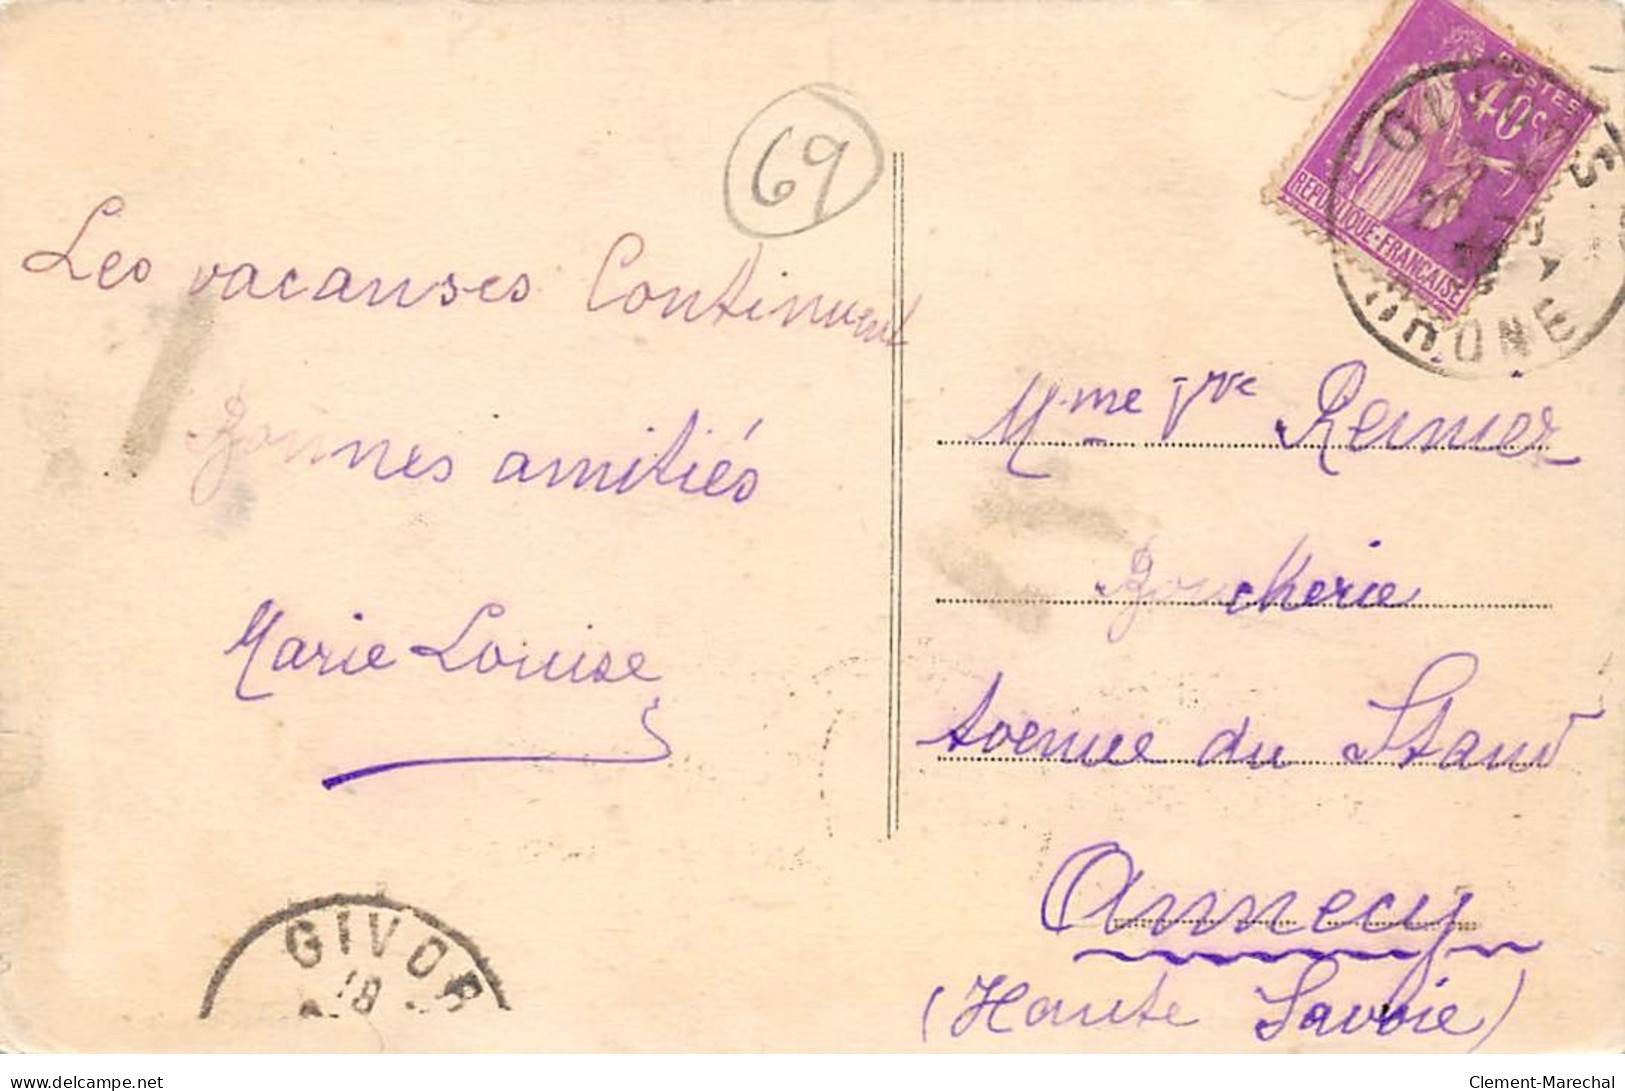 69
POSTES
40c
REPUBLIQUE-FRANCAISE
GIVORS
RHONE
Les vacanses Continuent
Bonnes amitiés
Marie Louise
Mme Vve Reinier
Bouckerie
Avenue du Stand
Annecy
(Haute Savoie)
GIVOR
18
delcampe.net
Clement-Marechal